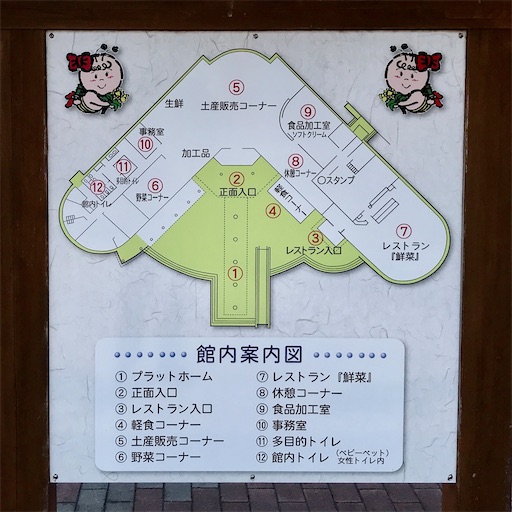 ⑤
土産販売コーナー
生鮮
⑨
食品加工室
ソフトクリーム
事務室
⑩
加工品
⑧
休憩コーナー
⑪
多目的トイレ
⑫
館内トイレ
⑥
野菜コーナー
②
正面入口
〇スタンプ
軽食コーナー
④
③
レストラン入口
⑦
レストラン
『鮮菜』
①
館内案内図
① プラットホーム
② 正面入口
③ レストラン入口
④ 軽食コーナー
⑤ 土産販売コーナー
⑥ 野菜コーナー
⑦ レストラン『鮮菜』
⑧ 休憩コーナー
⑨ 食品加工室
⑩ 事務室
⑪ 多目的トイレ
⑫ 館内トイレ (ベビーベット)
女性トイレ内